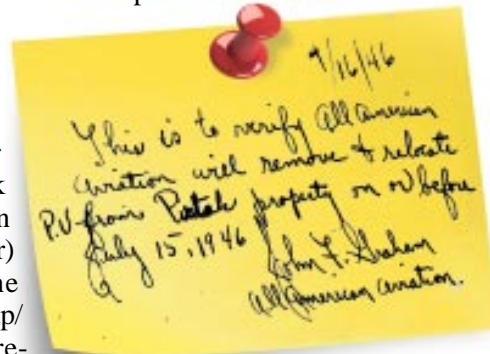 9/16/46
This is to verify All American
Aviation will remove & relocate
P.U. from Pustak property on or before
July 15, 1946
John F. Graham
All American Aviation.
k
n
r)
ne
p/
re-